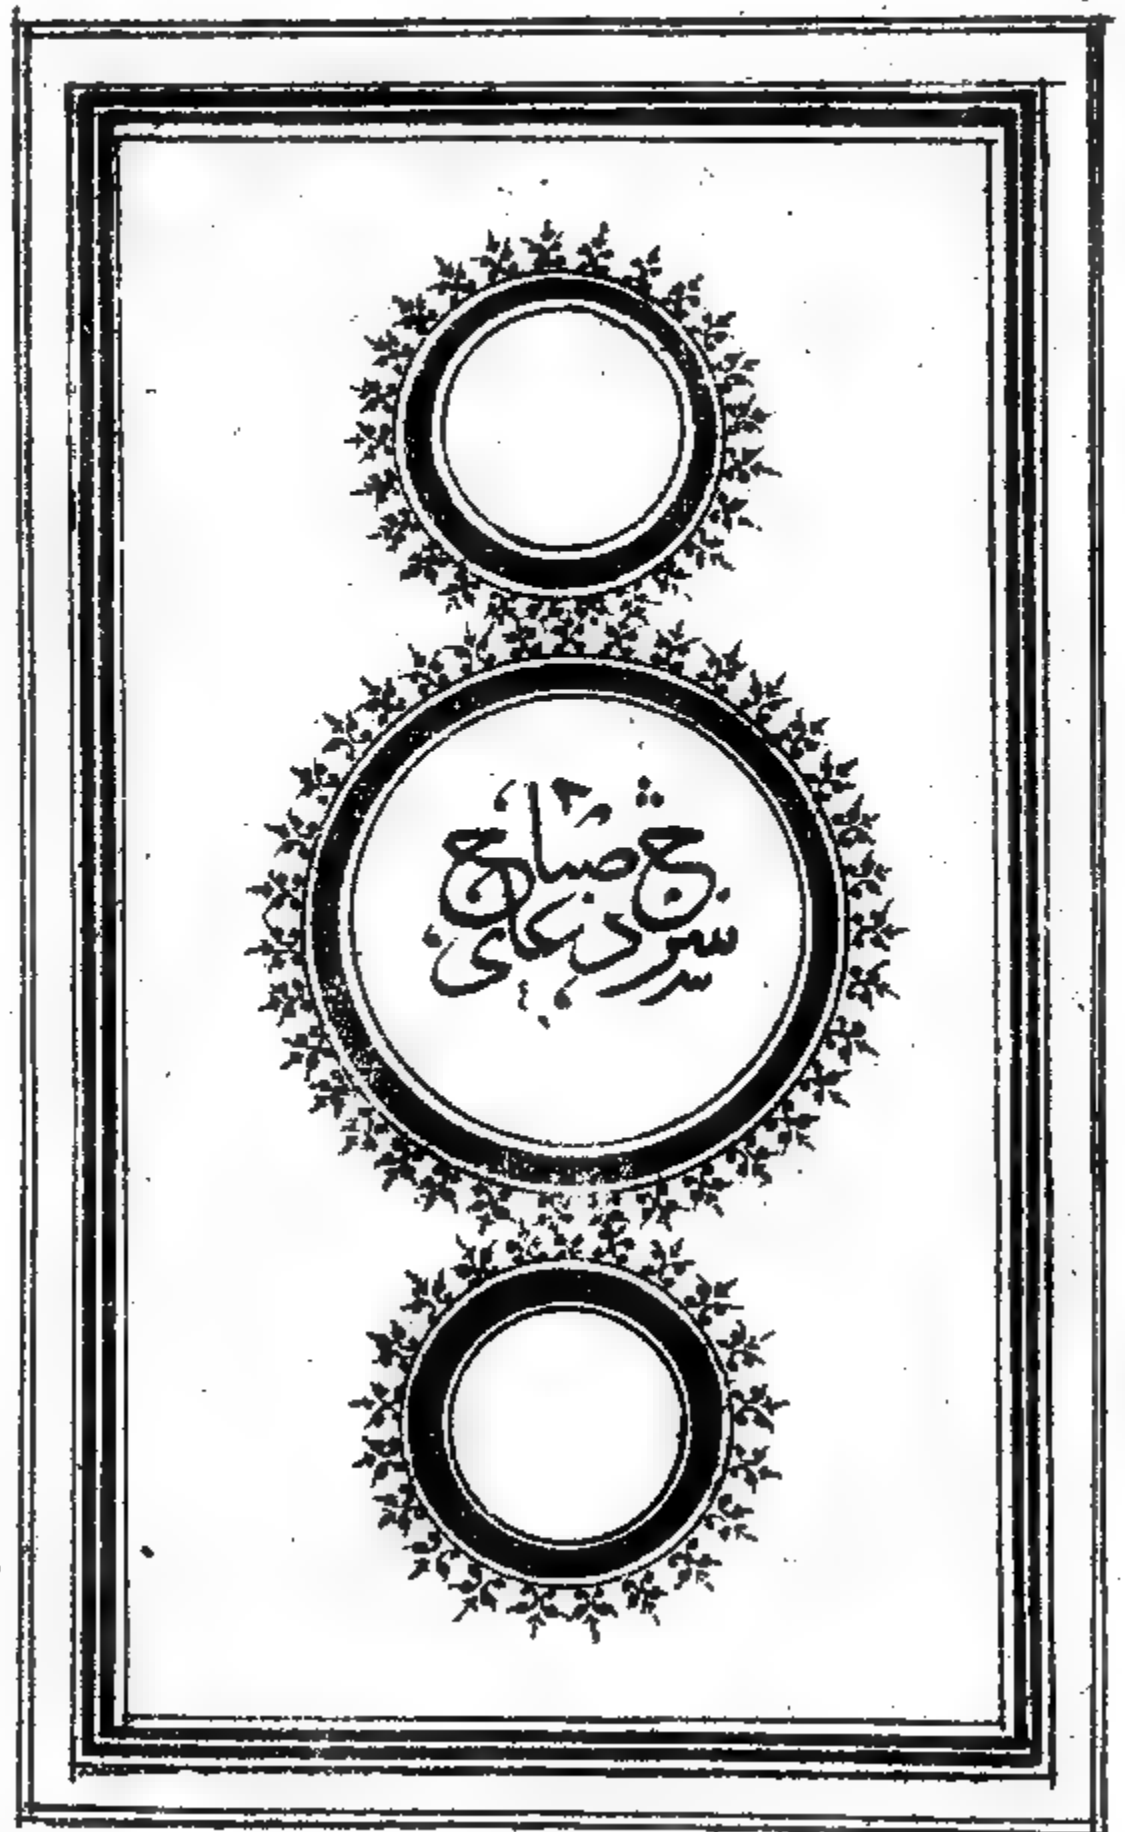 شرح دعای صباح